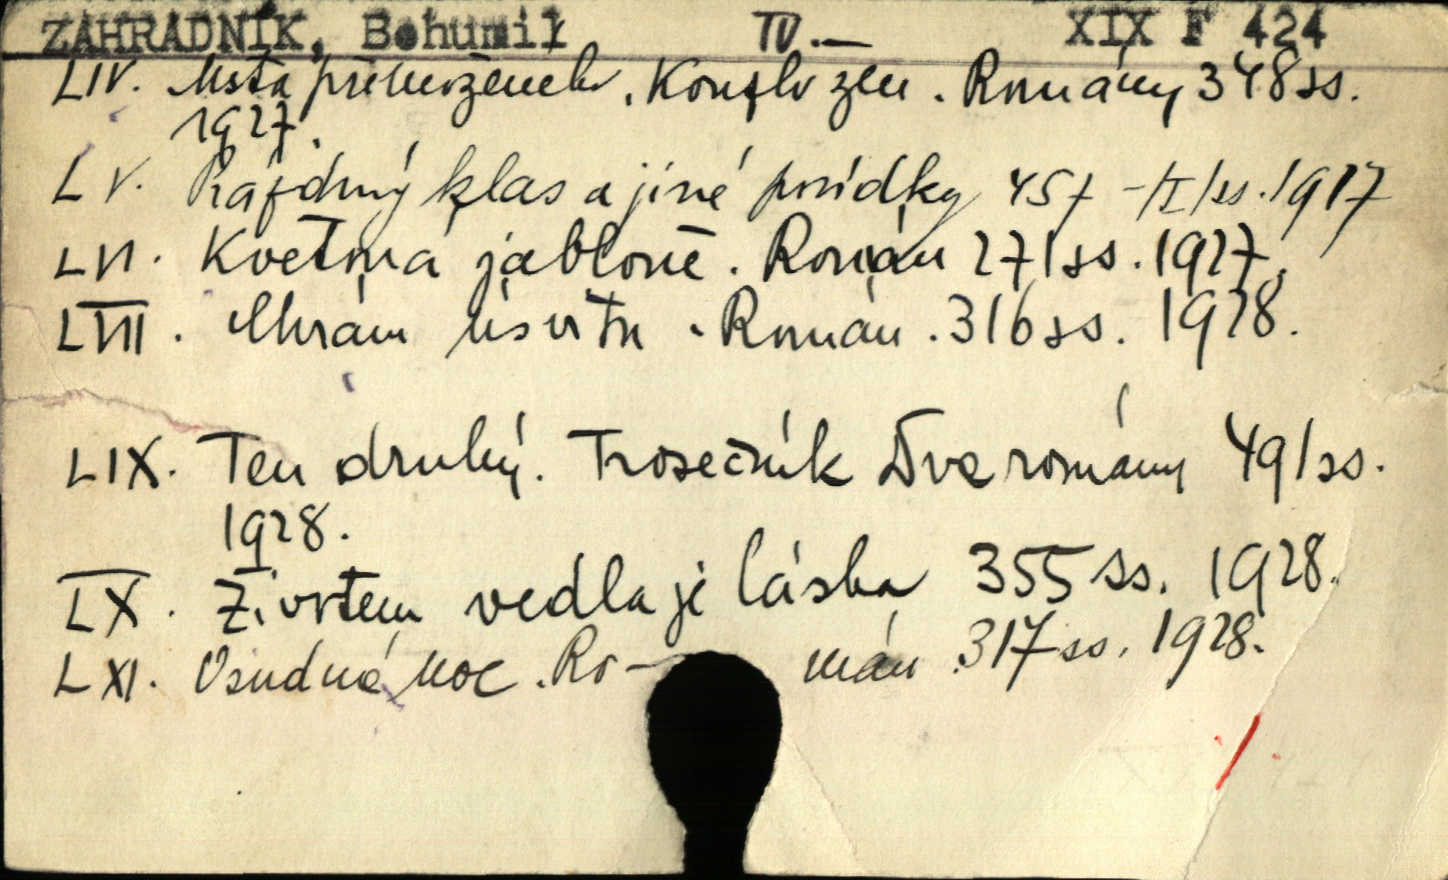 ZÁHRADNÍK, Bohumil IV.— XIX F 424
LIV. Msta přemožených. Konflv žen. Romány 348 ss.
1927.
LV. Prázdný klas a jiné povídky 457 -/I/ ss. 1917
LVI. Květná jabloně. Román 271 ss. 1927.
LVII. Chrám úsvitu. Román. 316 ss. 1928.
LIX. Ten druhý. Trosečník Dva romány 491 ss.
1928.
LX. Životem vedla je láska 355 ss. 1928.
LXI. Osudná noc. Ro- mán. 317 ss. 1928.